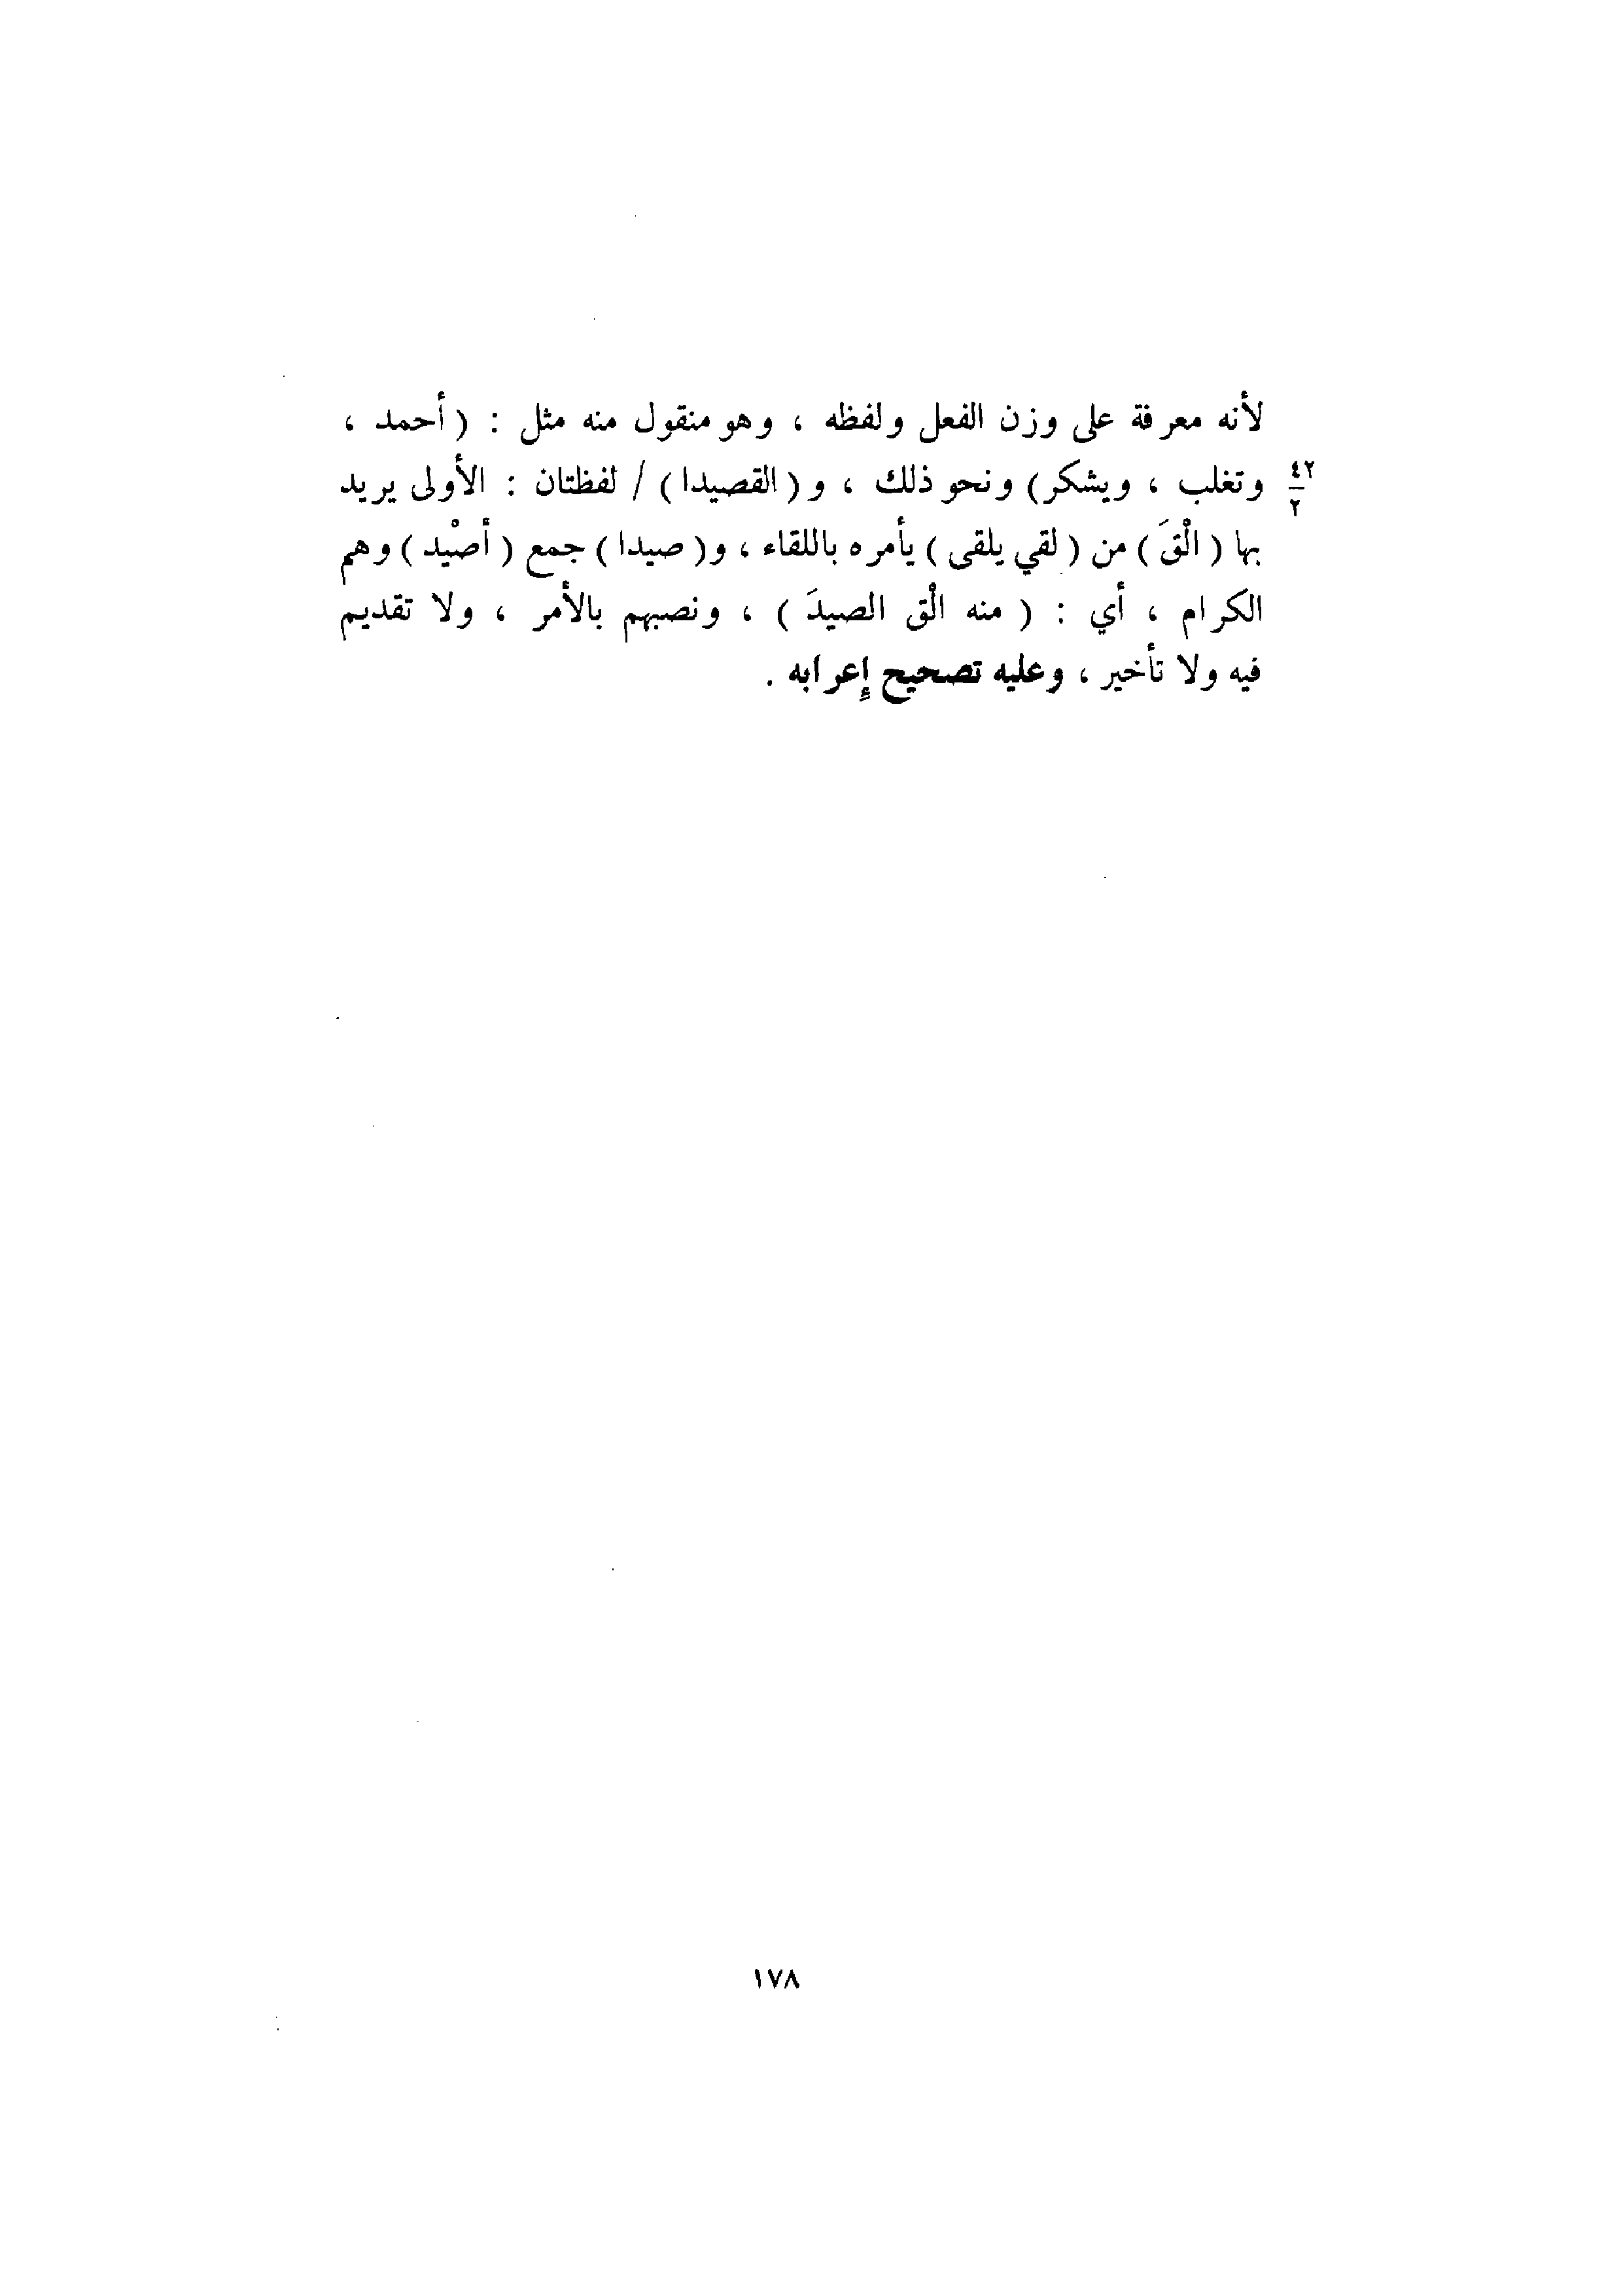 لأنه معرفة على وزن الفعل ولفظه ، وهو منقول منه مثل : ( أحمد ،
٤٢
٢
وتغلب ، ويشكر) ونحو ذلك ، و ( القصيدا ) / لفظتان : الأولى يريد
بها ( الْقَ ) من ( لقي يلقى ) يأمره باللقاء ، و( صيدا ) جمع ( أصْيد ) وهم
الكرام ، أي : ( منه الْق الصيدَ ) ، ونصبهم بالأمر ، ولا تقديم
فيه ولا تأخير ، وعليه تصحيح إعرابه .
١٧٨